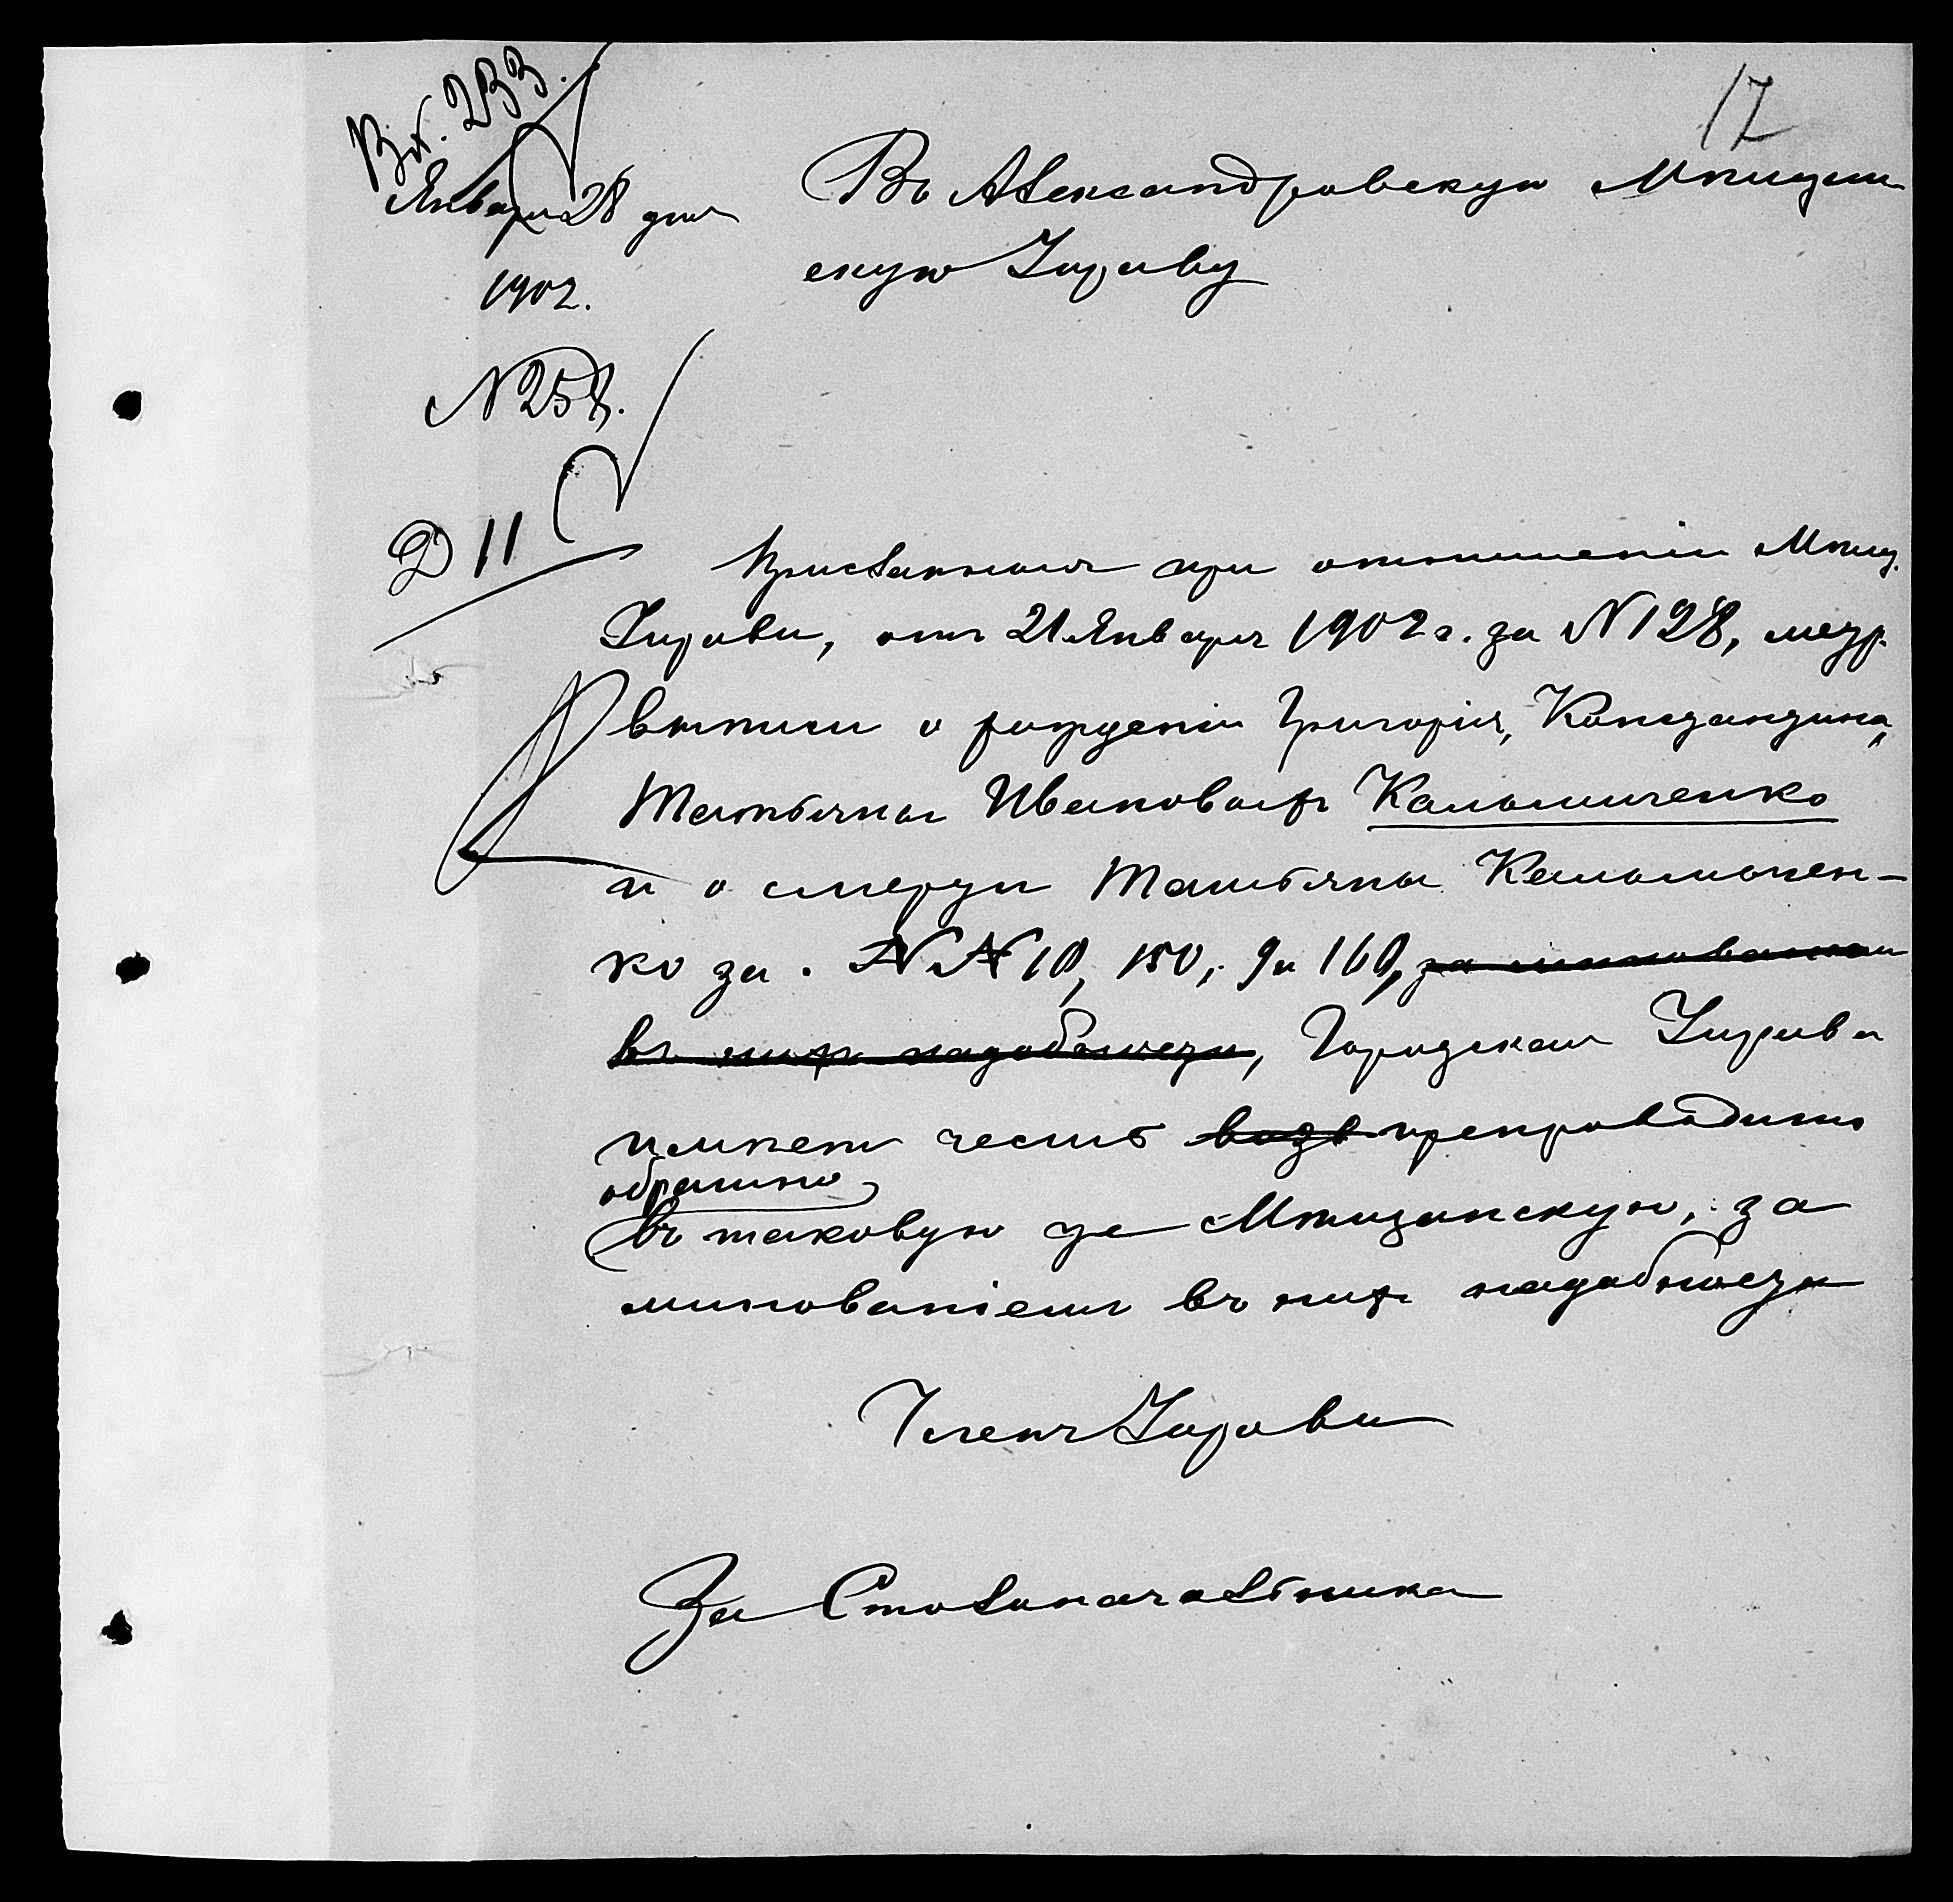 Вх. 233.
17
Января 28 дня
1902.
№ 258.
Д 11
Въ Александровскую Мѣщан
скую Управу
Присланныя при отношеніи Мѣщ.
Управы, отъ 21 Января 1902 г. за № 128, метр.
выписи о рожденіи Григорія, Константина,
Татьяны Ивановыхъ
и о смерти Татьяны
ко за №№ 10, 150, 9 и 160, за минованіем
въ нихъ надобности, Городская Управа
имѣетъ честь возв препроводить
обратно
въ таковую же Мѣщанскую, за
минованіемъ въ нихъ надобности
Членъ Управы
За Столоначальника